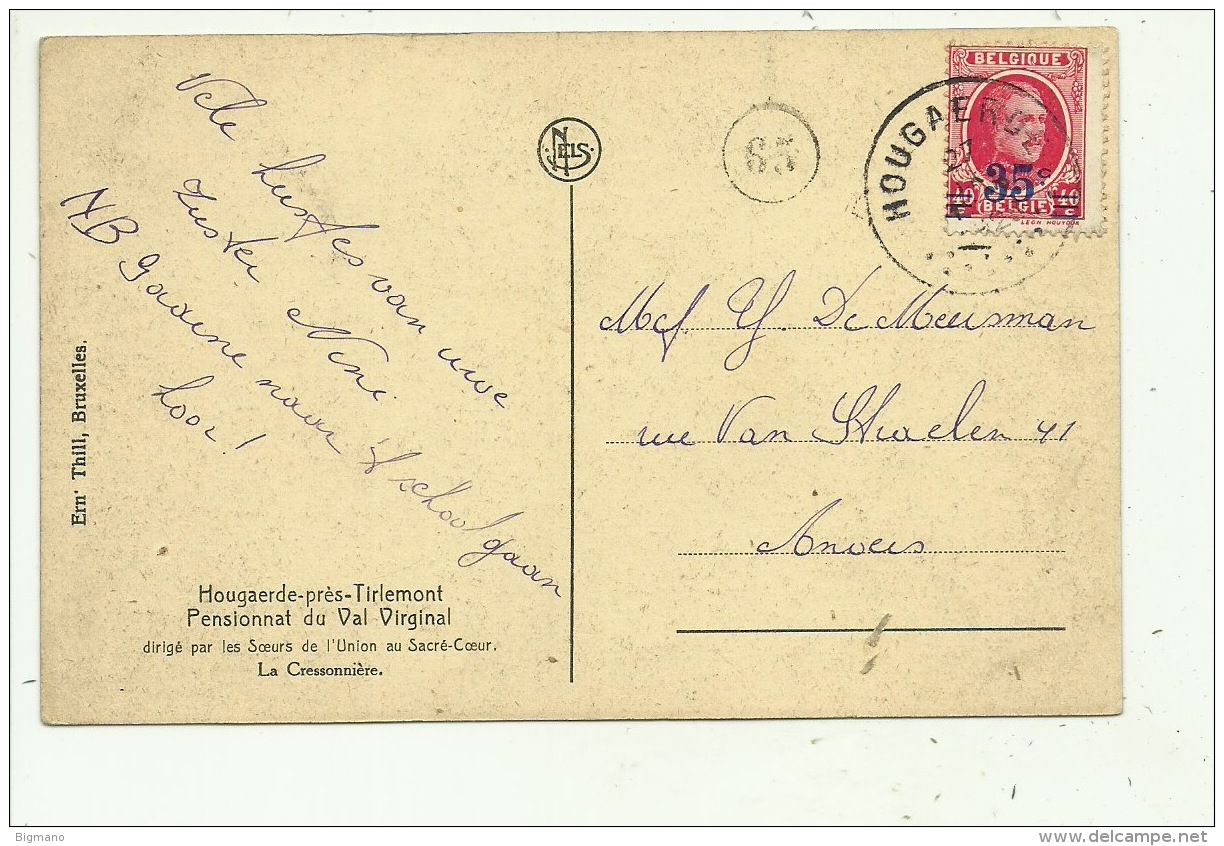 Vele kusjes van uwe
Zuster Nine.
NB Gaarne naar 't school gaan
hoor!
Ern. Thill, Bruxelles.
Hougaerde-près-Tirlemont
Pensionnat du Val Virginal
dirigé par les Sœurs de l'Union au Sacré-Cœur.
La Cressonnière.
NELS
85
BELGIQUE
HOUGAERDE
35c
40 BELGIË 40
LEON HOUYOUX
Y. De Meersman
rue Van Straelen 41
Anvers
Bigmano
delcampe.net